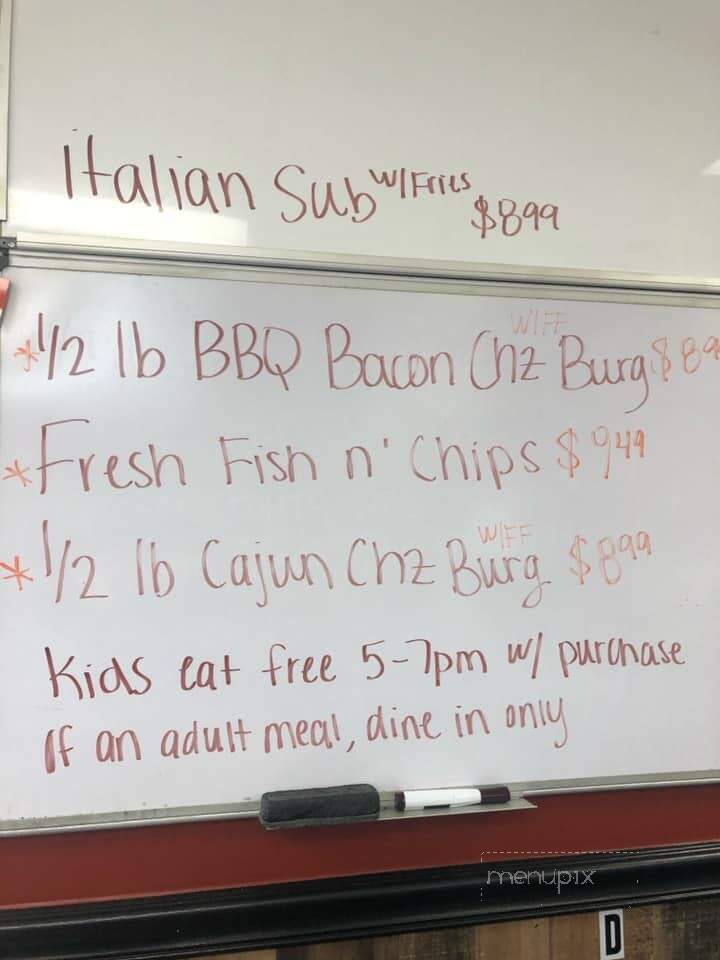 Italian Sub w/Fries $899
W/FF
*1/2 lb BBQ Bacon Chz Burg $89
*Fresh Fish n' Chips $949
W/FF
*1/2 lb Cajun Chz Burg $899
Kids eat free 5-7pm w/ purchase
of an adult meal, dine in only
menupix
D